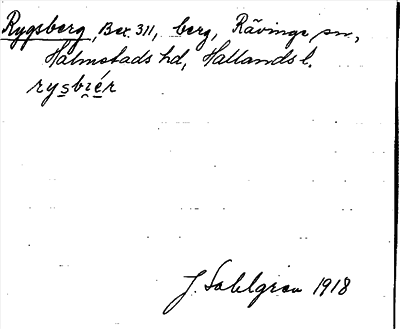 Rygsberg, Bex. 311, berg, Rävinge sn,
Halmstads hd, Hallands l.
rysbiér
J. Sahlgren 1918